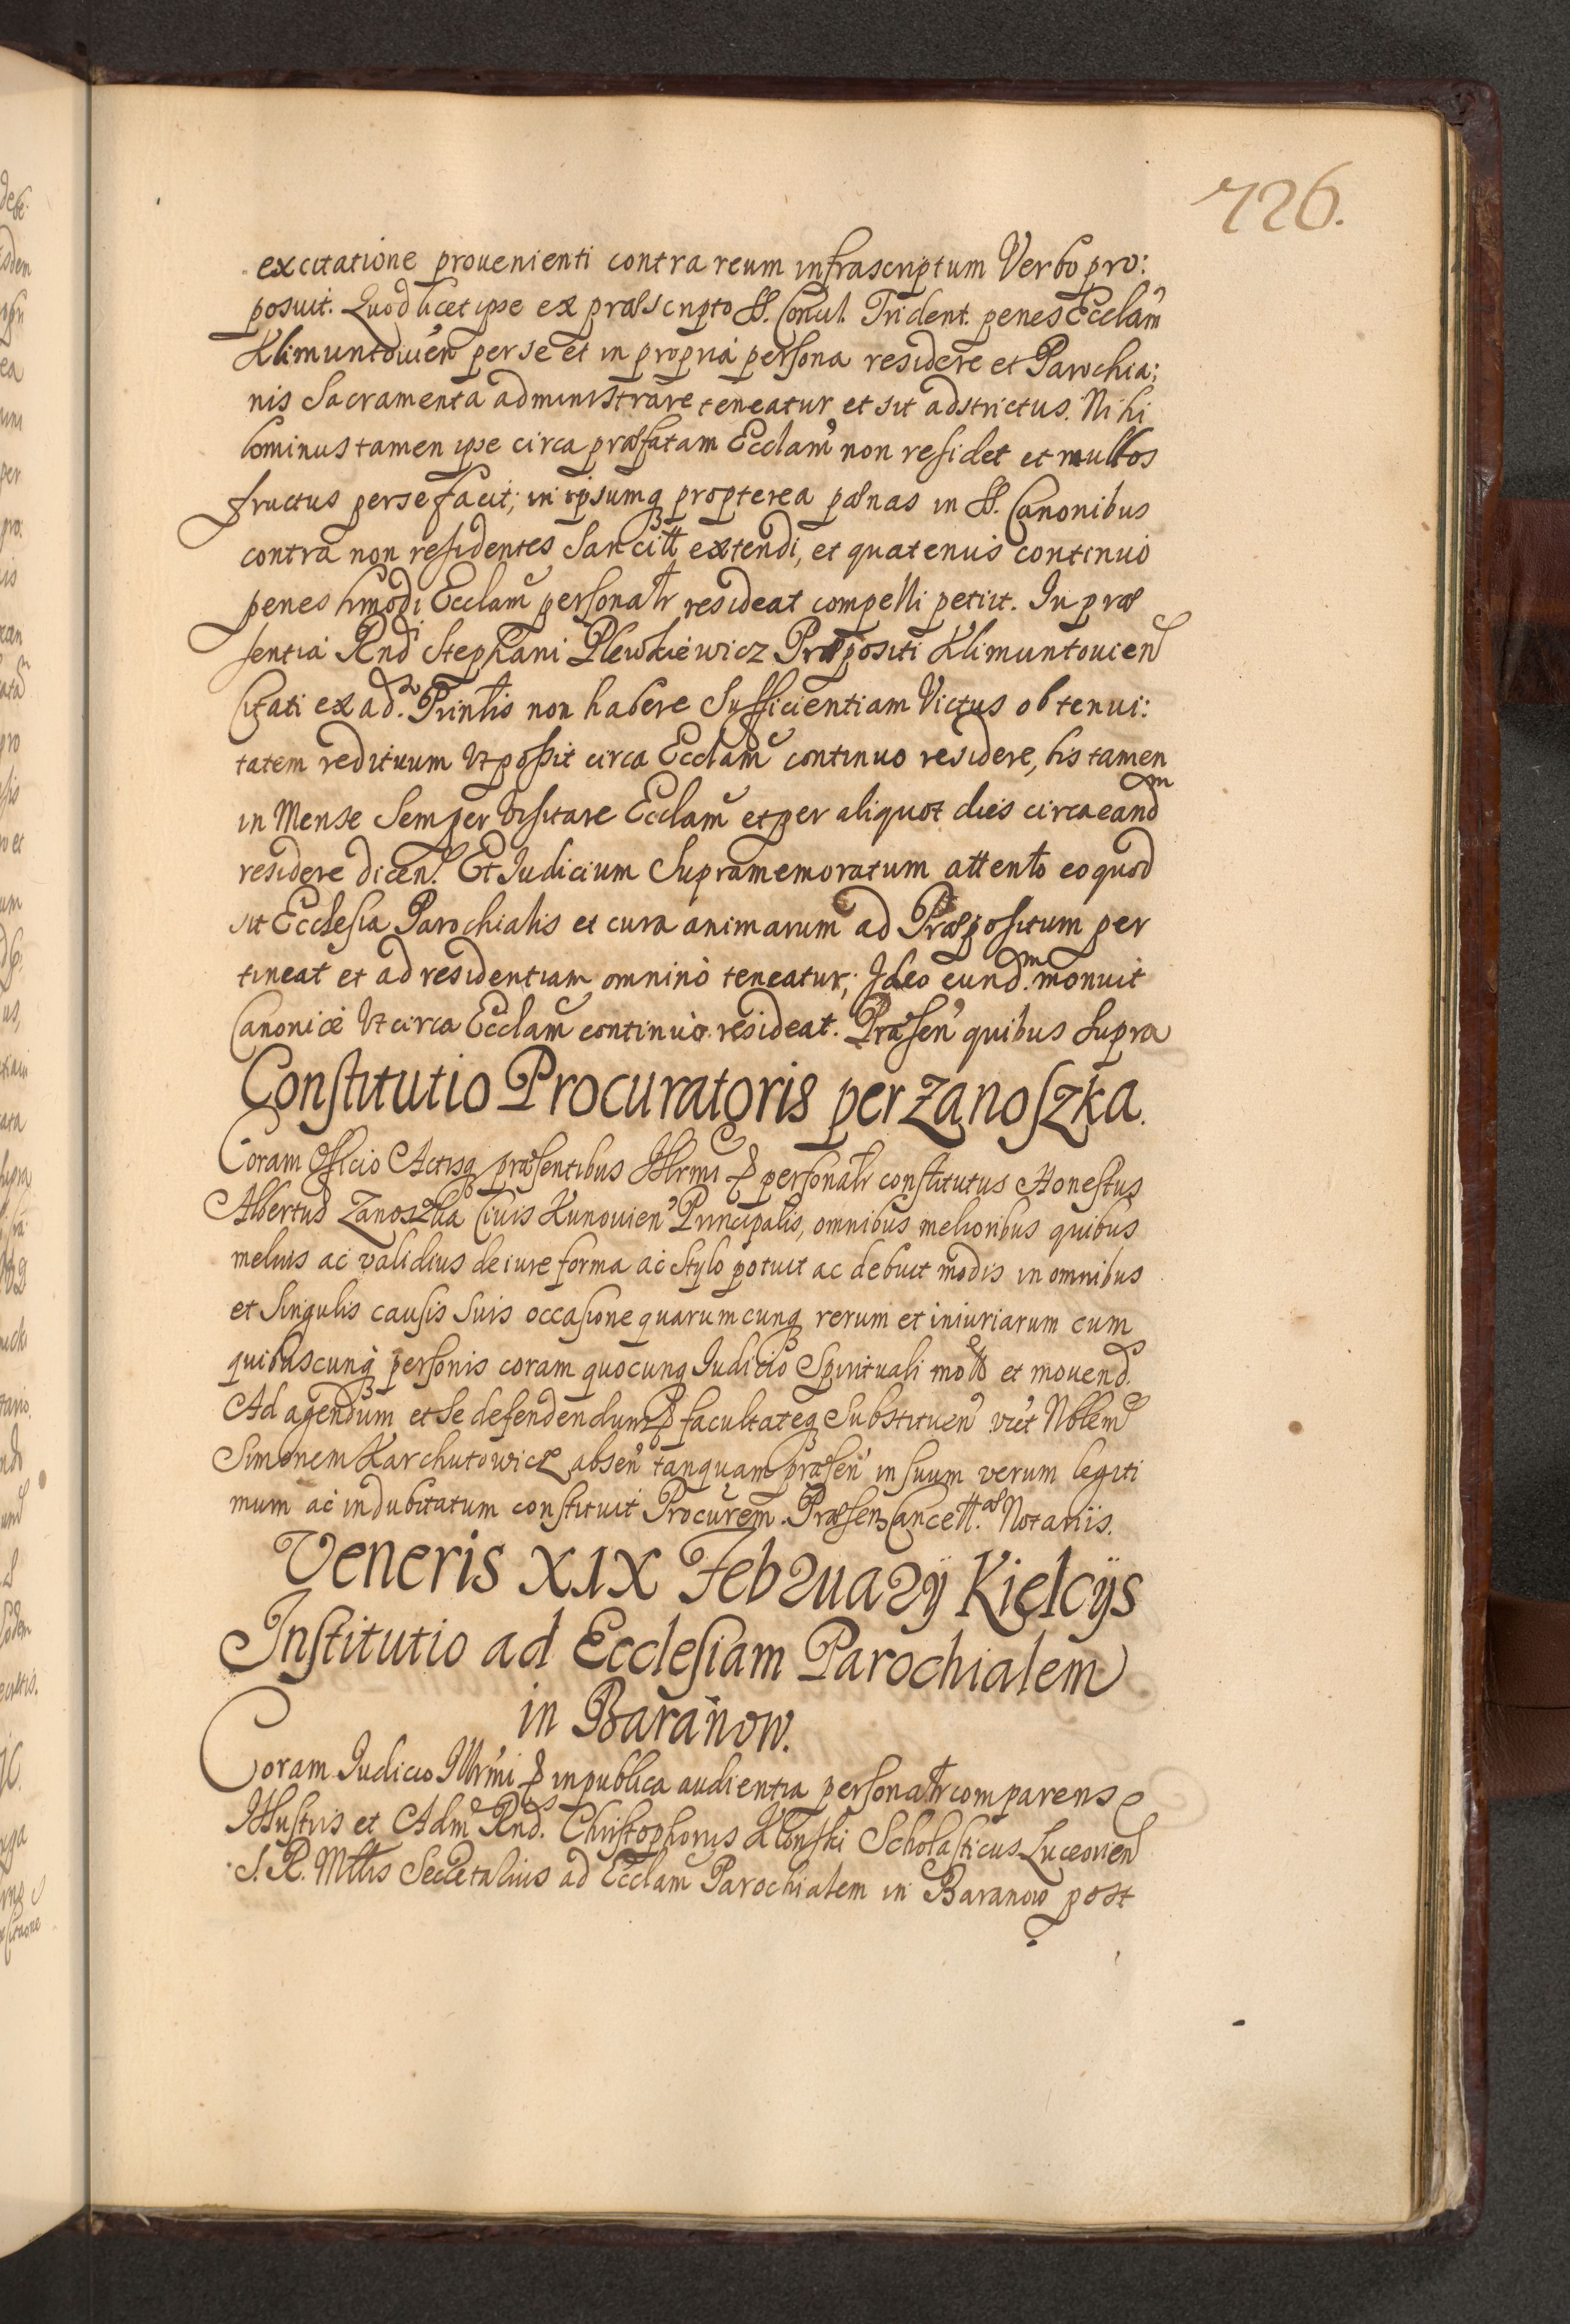 726.
excitatione prouenienti contra reum infrascriptum Verbo pro:
posuit. Quod licet ipse ex præscripto SS. Concil. Trident. penes Ecclam̄
Klimuntouień per se et in propria persona residere et Parochia:
nis Sacramenta administrare teneatur et sit adstrictus. Nihi
lominus tamen ipse circa præfatam Ecclam̄ non residet et multos
fructus per se facit; in ipsumq propterea pœnas in SS. Canonibus
contra non residentes Sancitt extendi, et quatenus continuo
penes hmōdi Ecclam̄ personalr resideat compelli petiit. In præ
sentia Rndi Stephani Plewkiewicz Præpositi Klimuntouien
Citati ex ad. Prinlis non habere Sufficientiam Victus ob tenui:
tatem redituum Vt possit circa Ecclam̄ continuo residere, bis tamen
in Mense Semper Visitare Ecclam̄ et per aliquot dies circa eandm
residere diceń. Et Iudicium Supramemoratum attento eo quod
sit Ecclesia Parochialis et cura animarum ad Præpositum per
tineat et ad residentiam omninò teneatur; Ideo eund.m monuit
Canonicè Vt circa Ecclam̄ continuò resideat. Præseń quibus supra
Constitutio Procuratoris per Zanoszka.
Coram Officio Actisq præsentibus Illrmi & personalr constitutus Honestus
Albertus Zanoszka Ciuis Kunouień Principalis, omnibus melioribus quibus
melius ac validius de iure forma ac stylo potuit ac debuit modis in omnibus
et Singulis causis Suis occasione quarumcunq rerum et iniuriarum cum
quibuscunq personis coram quocunq Iudicio Spirituali mott et mouend.
Ad agendum et Se defendendum & facultateq Substitueń viet Nblem
Simonem Karchutowicz abseń tanquam præseń in suum verum legiti
mum ac indubitatum constituit Procurem̄. Præsen Cancell.æ Notariis.
Veneris XIX Februarÿ Kielcÿs
Institutio ad Ecclesiam Parochialem
in Baranow.
Coram Iudicio Illrmi & in publica audientia personalr comparens
Illustris et Adm Rnds. Christophorus Kłonski Scholasticus Luceorien
S. R. Mttis Secretarius ad Ecclam̄ Parochialem in Baranow post